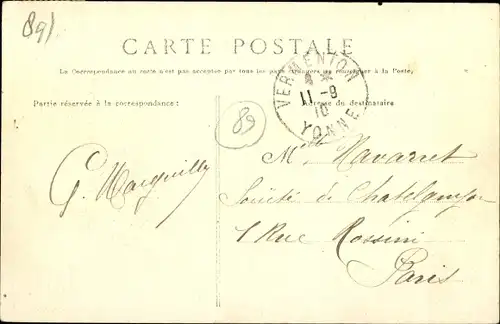 89)
CARTE POSTALE
La Correspondance au recto n'est pas acceptée par tous les pays étrangers se renseigner à la Poste.
Partie réservée à la correspondance:
Adresse du destinataire
VERMENTON
11-9
10
YONNE
89
Melle Navarret
Société de Chatelguyon
1 Rue Rossini
Paris